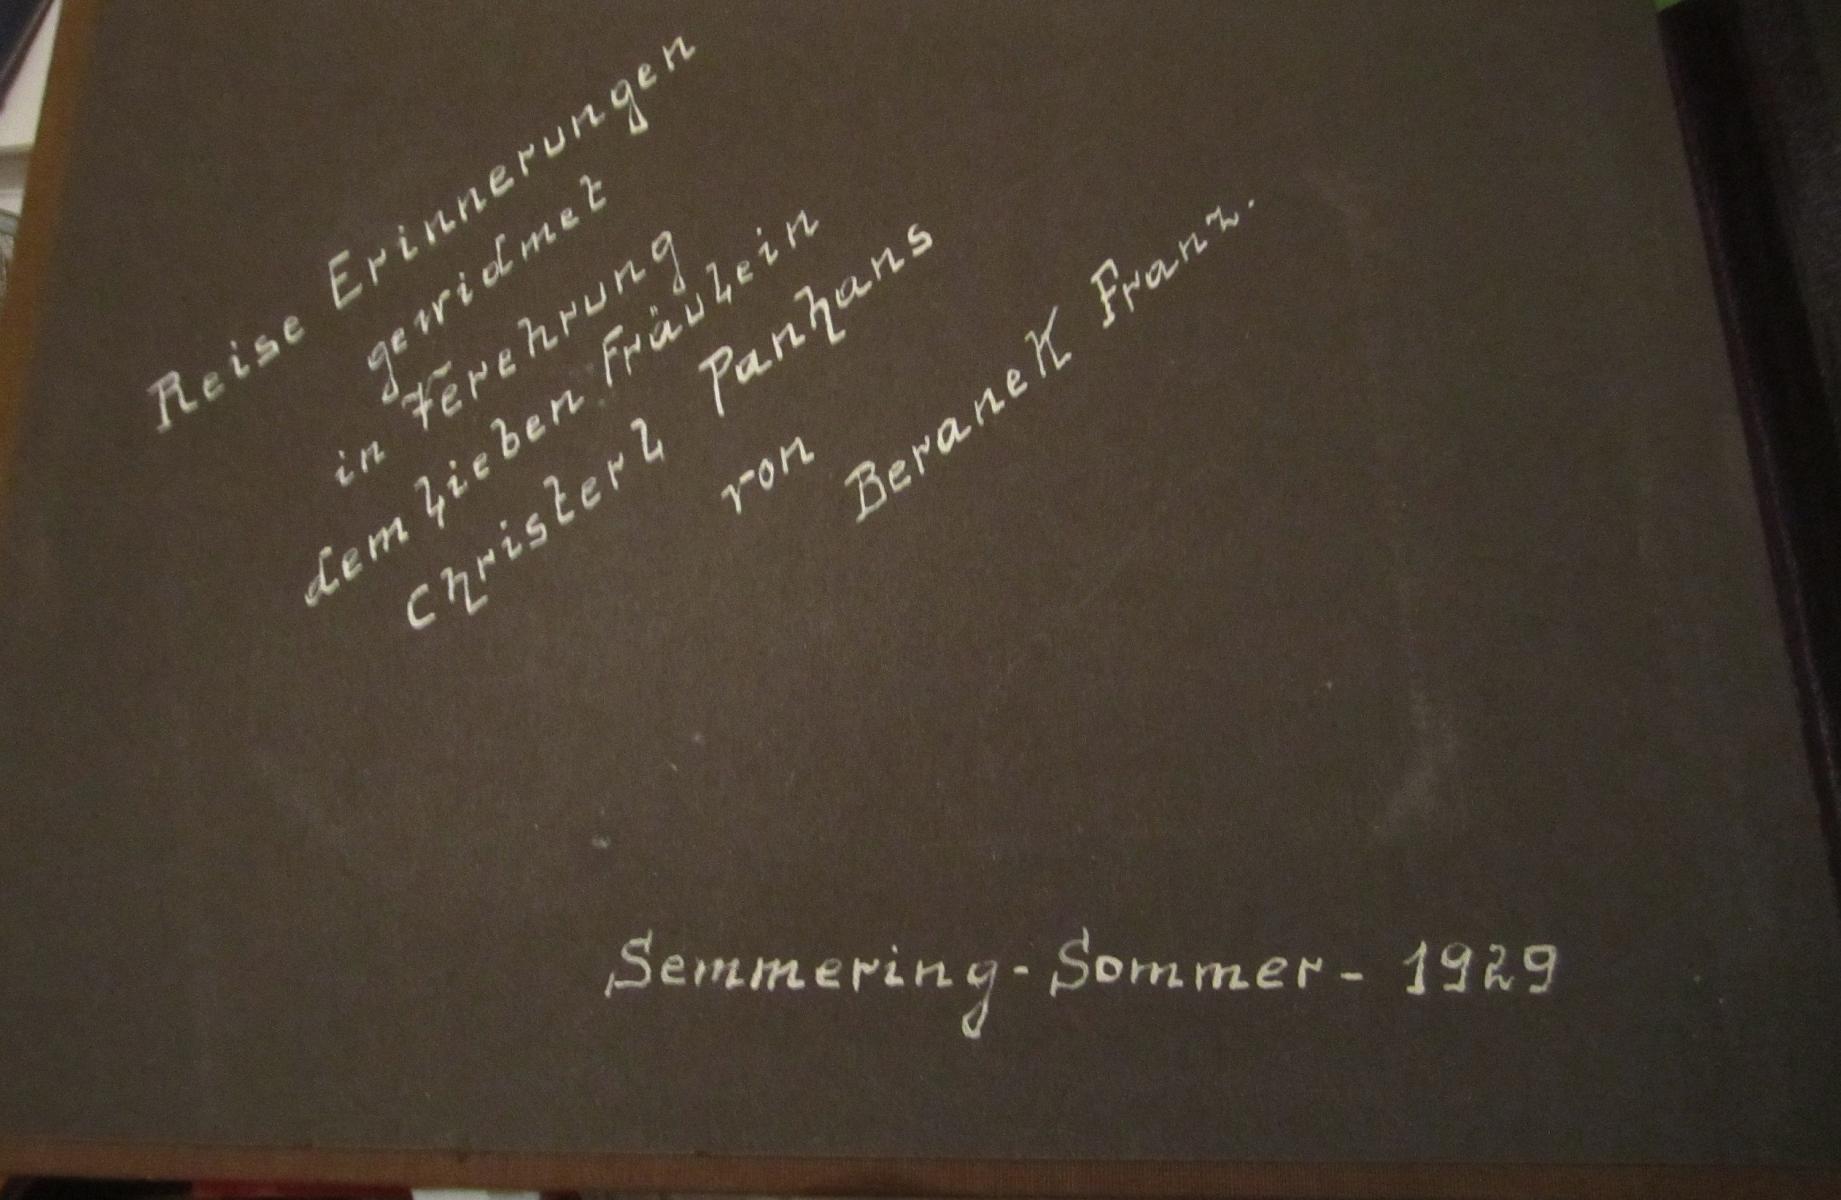 Reise Erinnerungen
gewidmet
in Verehrung
dem lieben Fräulein
Christerl Panhans
von
Beranek Franz.
Semmering-Sommer-1929